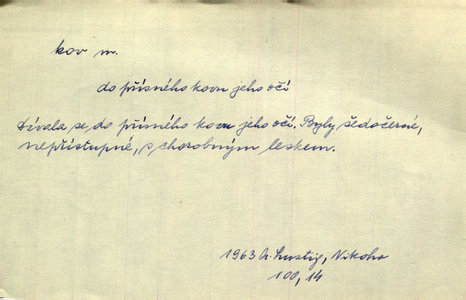 kov m.
do přísného kovu jeho očí
Dívala se do přísného kovu jeho očí. Byly šedočerné,
nepřístupné, s chorobným leskem.
1963 A. Lustig, Nikoho
100, 14